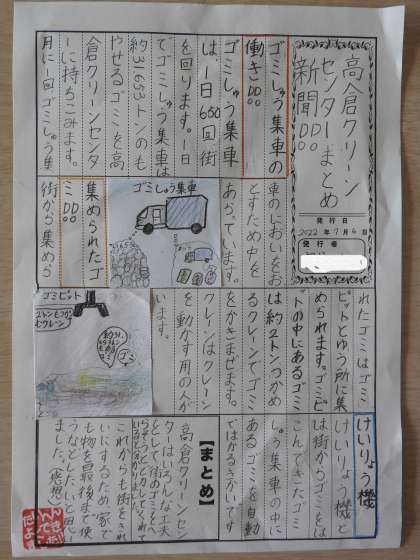 高倉クリーン
センターまとめ
新聞
発行日
2022年7月6日
発行者
ゴミしゅう集車の
働き
ゴミしゅう集車
は、1日650回街
を回ります。1日
でゴミしゅう集車は
約31653トンのも
やせるゴミを高
倉クリーンセンタ
ーに持ちこみます。
月に1回ゴミしゅう集
車のにおいをお
とすため中を
あらっています。
ゴミしゅう集車
集められたゴ
ミ
街から集めら
れたゴミはゴミ
ピットとゆう所に集
められます。ゴミピ
トの中にあるゴミ
は約2トンつかめ
るクレーンでゴミ
をかきませます。
クレーンはクレーン
を動かす用の人が
います。
ゴミピット
2トンもつか
むクレーン
ゴミ
けいりょう機
けいりょう機と
は街からゴミをは
こんできたゴミ
しゅう集車の中に
あるゴミを自動
ではかるきかいです
【まとめ】
高倉クリーンセン
ターはいろんな工夫
をして街のゴミを
これからも街をきれ
いにするため家で
も物を最後まで使
うなどしたいと思い
ました。(感想)